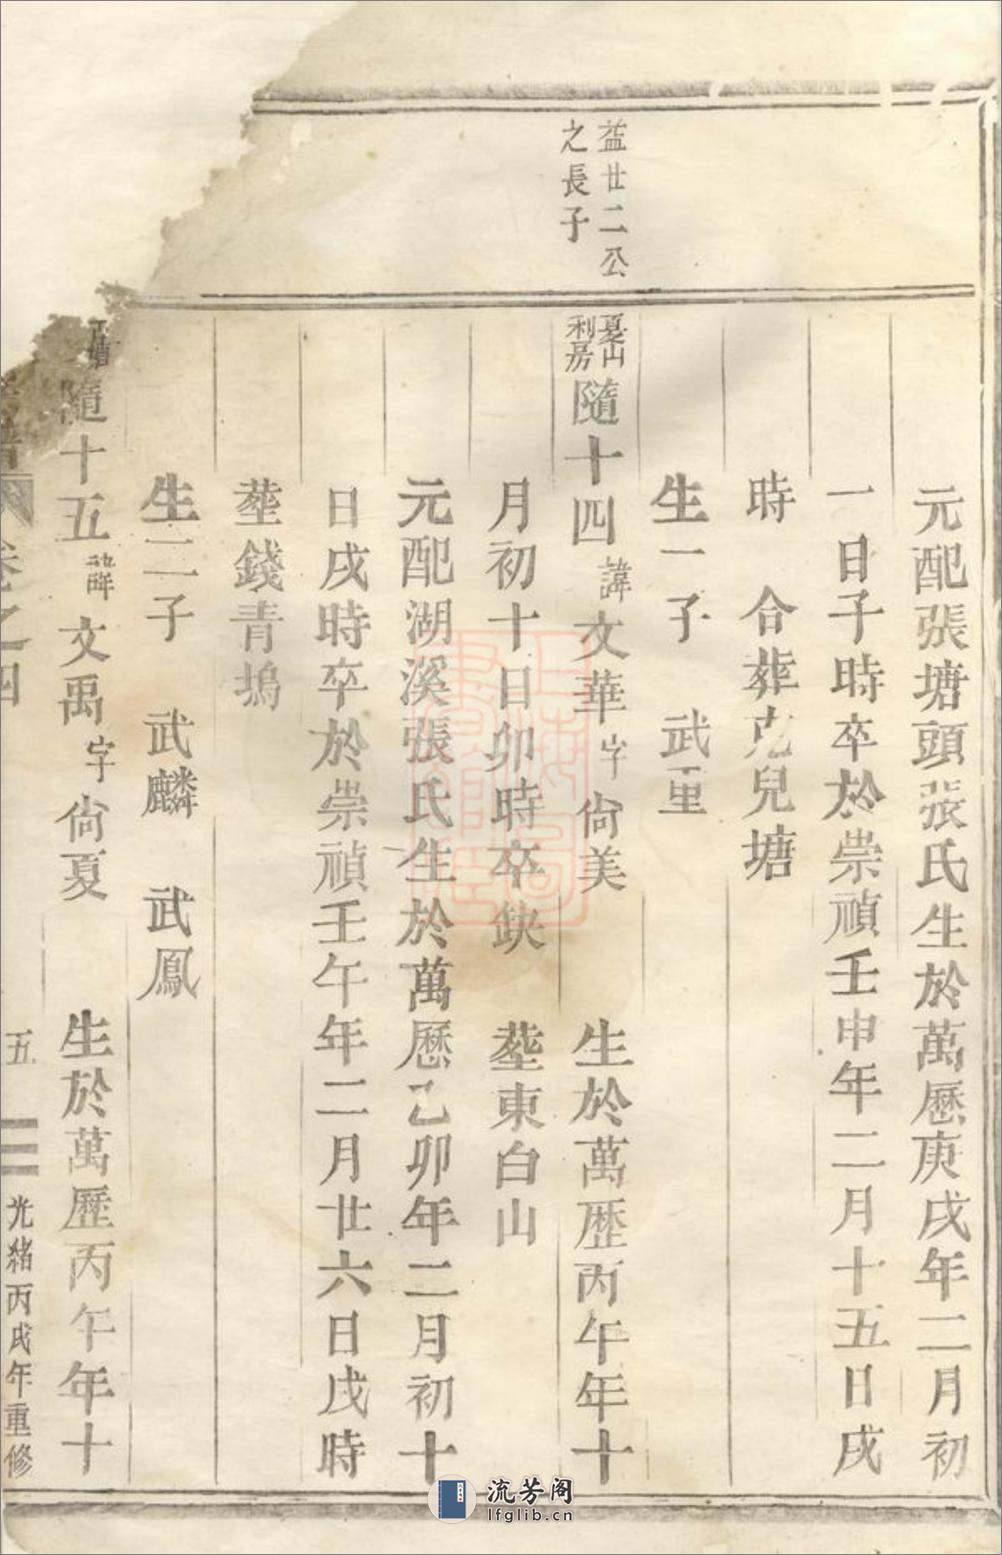 益廿二公
之長子
元配張塘頭張氏生於萬歷庚戌年二月初
一日子時卒於崇禎壬申年二月十五日戌
時　合葬克兒塘
生一子　武重
夏山
利房
隨十四諱文華字尙美　生於萬歷丙午年十
月初十日卯時卒缺　塟東白山
元配湖溪張氏生於萬歷乙卯年二月初十
日戌時卒於崇禎壬午年二月廿六日戌時
塟錢青塢
生二子　武麟　武鳳
隨十五諱文禹字尙夏　生於萬歷丙午年十
卷之四
五
光緒丙戌年重修
流芳阁
lfglib.cn